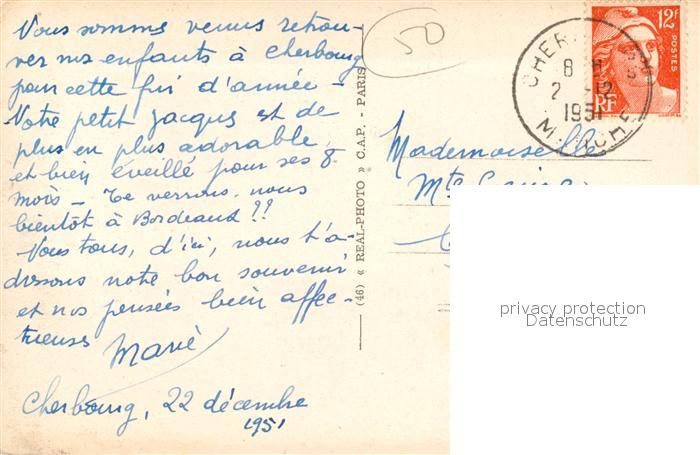 Vous sommes venus retrou-
ver nos enfants à Cherbourg
pour cette fin d'année -
Votre petit Jacques est de
plus en plus adorable
et bien éveillé pour ses 8
mois - Te verrons-nous
bientôt à Bordeaux ??
Vous tous, d'ici, nous t'a-
dressons notre bon souvenir
et nos pensées bien affec-
tueuses Marie
Cherbourg, 22 décembre
1951
50
(46) « REAL-PHOTO » C.A.P. - PARIS
12F
POSTES
RF
CHER
8 H
2 -12
1951
MANCHE
Mademoiselle
Mte
privacy protection
Datenschutz